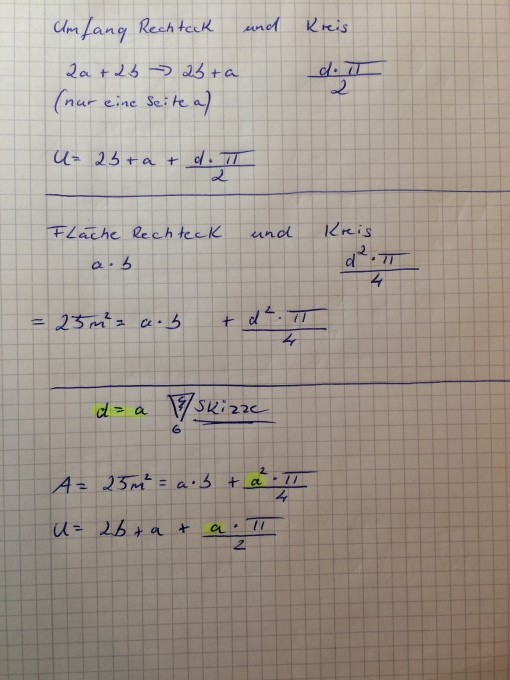 Umfang Rechteck und Kreis
2a + 2b → 2b + a d · π / 2
(nur eine Seite a)
U = 2b + a + d · π / 2
Fläche Rechteck und Kreis
a · b d² · π / 4
= 25m² = a · b + d² · π / 4
d = a Skizze
A = 25m² = a · b + a² · π / 4
U = 2b + a + a · π / 2